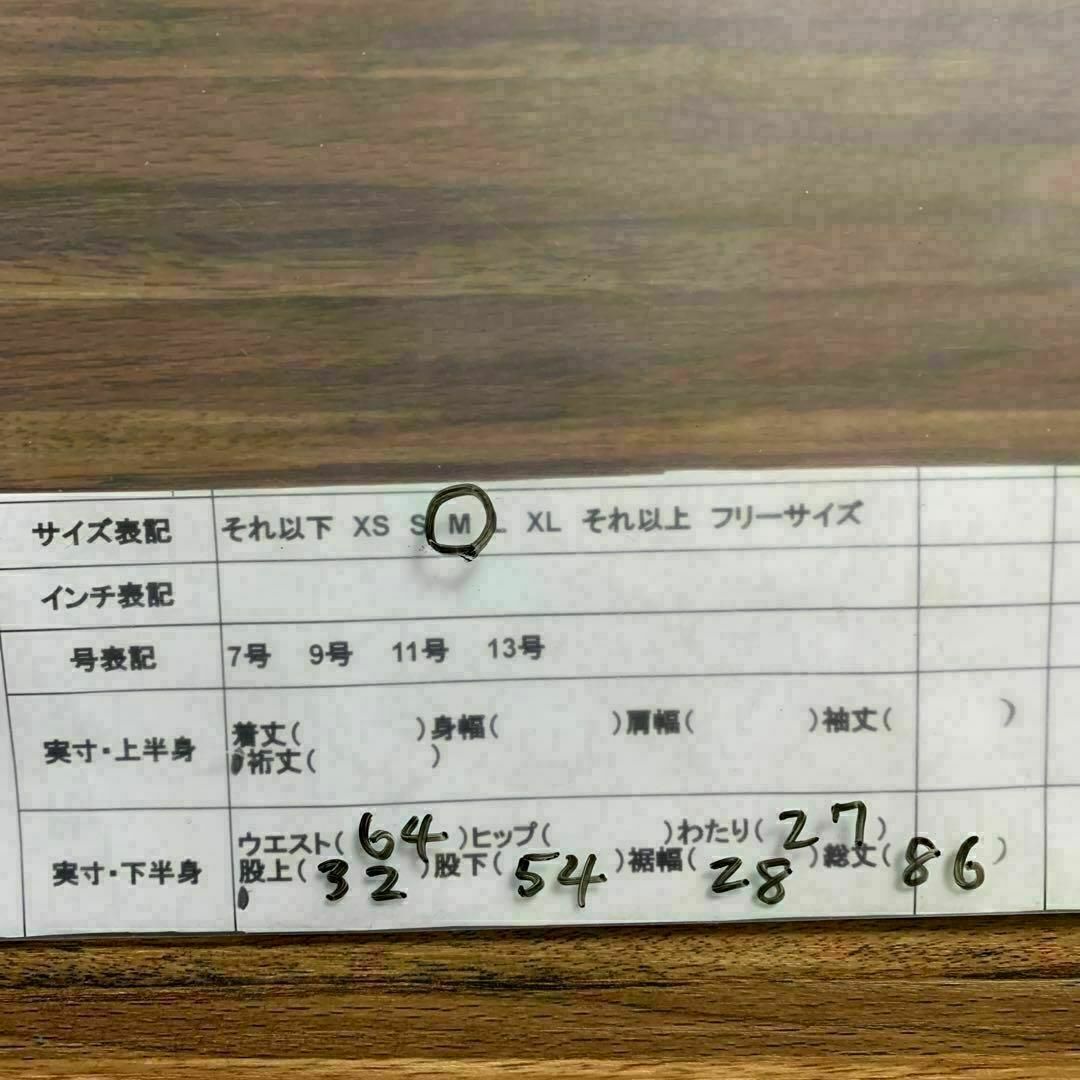 サイズ表記 それ以下 XS S M L XL それ以上 フリーサイズ
インチ表記
号表記 7号 9号 11号 13号
実寸・上半身 着丈( )身幅( )肩幅( )袖丈( )
裄丈( )
実寸・下半身 ウエスト( 64 )ヒップ( )わたり( 27 )
股上( 32 )股下( 54 )裾幅( 28 )総丈( 86 )